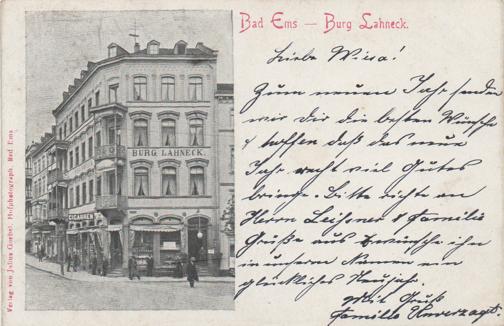 Bad Ems — Burg Lahneck.
Liebe Wiesa!
Zum neuen Jahr senden
wir Dir die besten Wünsche
& hoffen daß das neue
Jahr recht viel Gutes
bringe. Bitte richte an
Herrn Leihsner & Familie
Grüße aus & wünsche ihnen
in unserem Namen ein
glückliches Neujahr.
Mit Gruß
Familie Unverzagt.
BURG LAHNECK.
CIGARREN
Verlag von Julius Goebel, Hofphotograph, Bad Ems